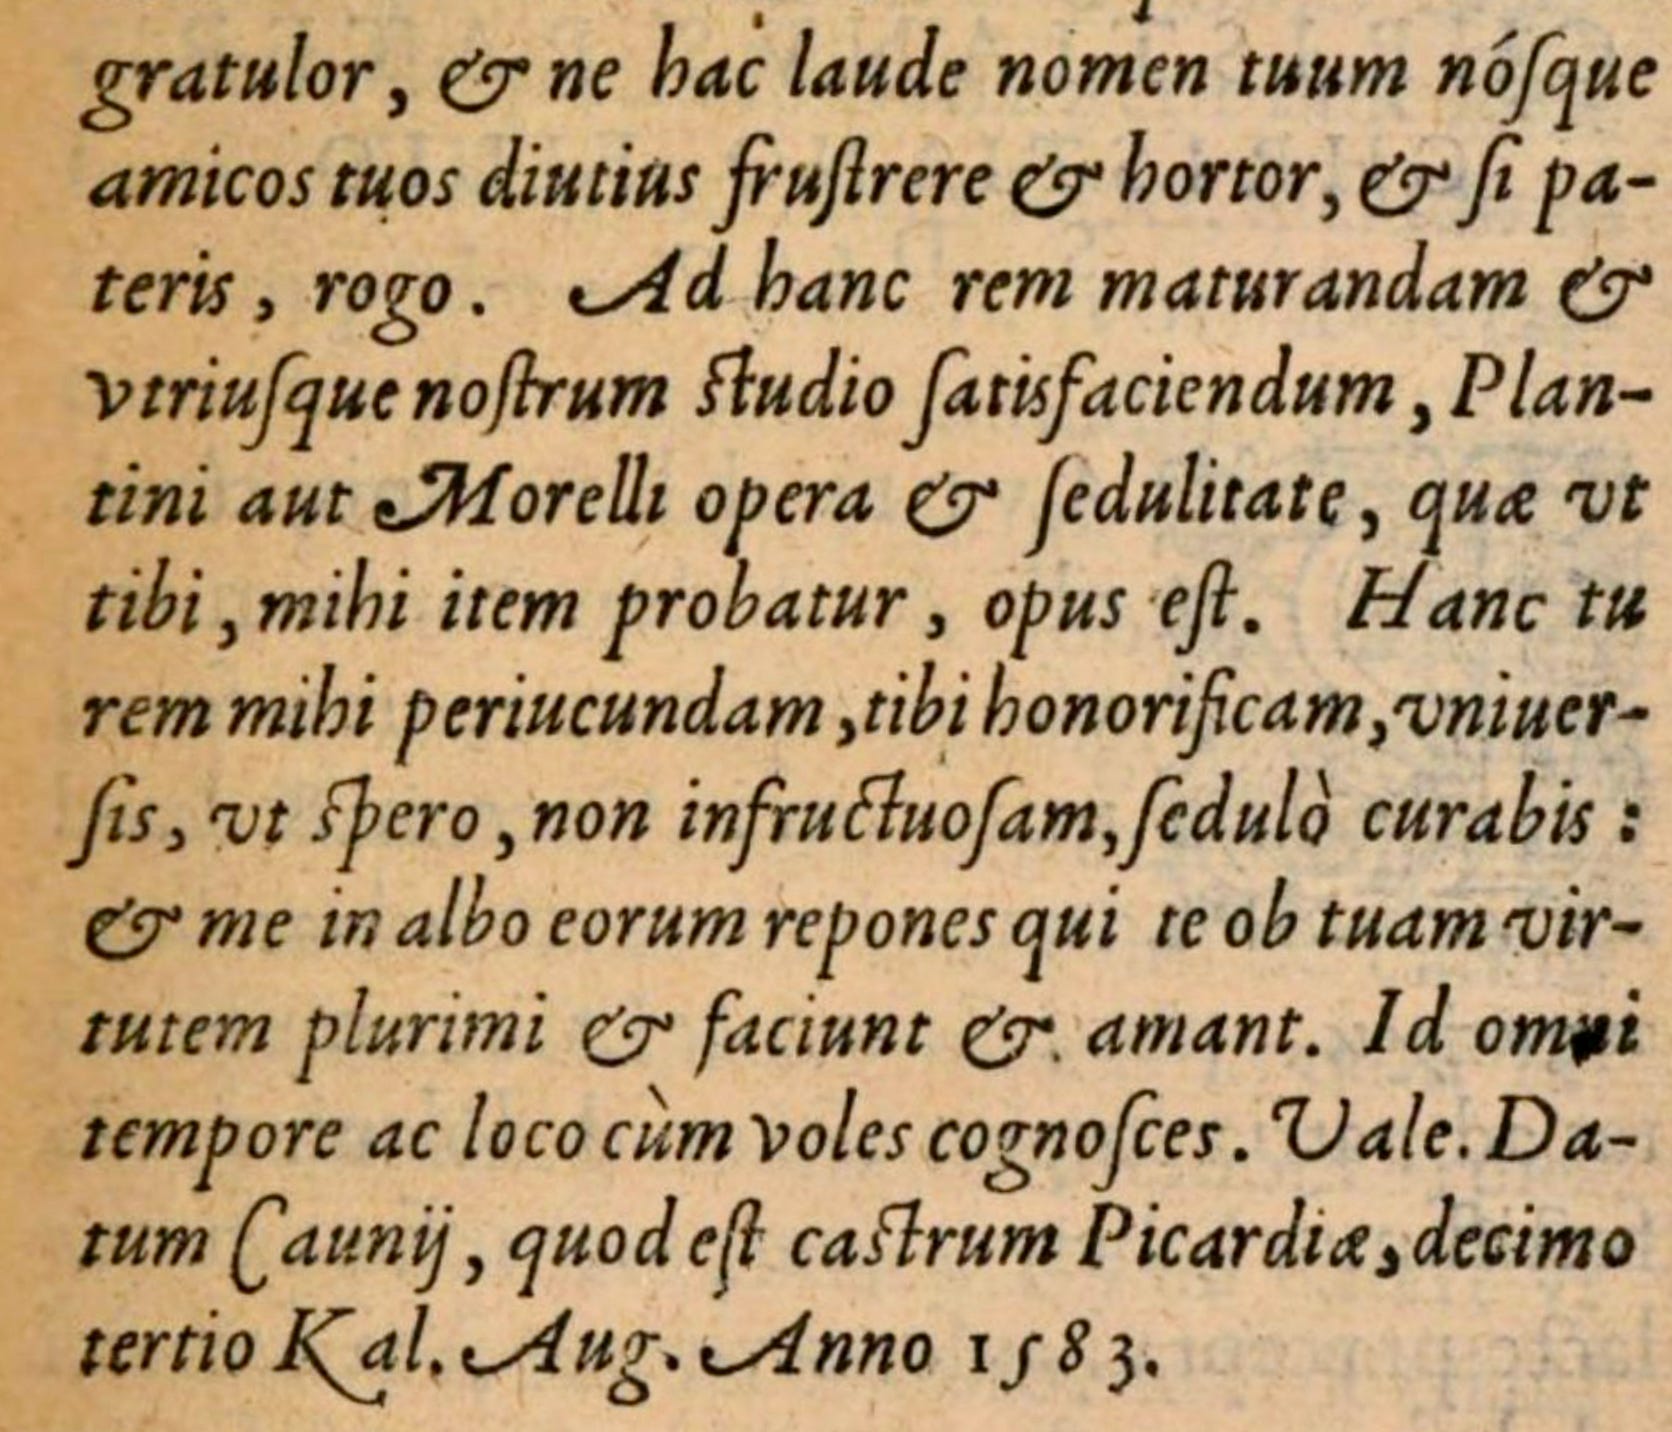 gratulor, & ne hac laude nomen tuum nósque
amicos tuos diutius frustrere & hortor, & si pa-
teris, rogo. Ad hanc rem maturandam &
vtriusque nostrum studio satisfaciendum, Plan-
tini aut Morelli opera & sedulitate, quæ vt
tibi, mihi item probatur, opus est. Hanc tu
rem mihi periucundam, tibi honorificam, vniuer-
sis, vt spero, non infructuosam, sedulò curabis:
& me in albo eorum repones qui te ob tuam vir-
tutem plurimi & faciunt & amant. Id omni
tempore ac loco cùm voles cognosces. Vale. Da-
tum Caunij, quod est castrum Picardiæ, decimo
tertio Kal. Aug. Anno 1583.